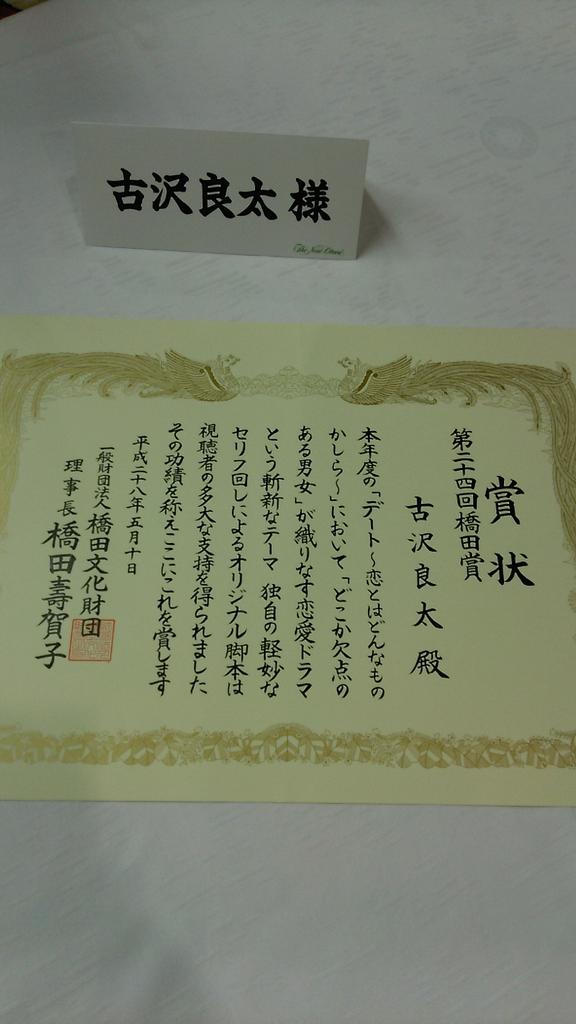 古沢良太 様
The New Otani
賞状
第二十四回橋田賞
古沢良太 殿
本年度の「デート〜恋とはどんなもの
かしら〜」において「どこか欠点の
ある男女」が織りなす恋愛ドラマ
という斬新なテーマ 独自の軽妙な
セリフ回しによるオリジナル脚本は
視聴者の多大な支持を得られました
その功績を称えここにこれを賞します
平成二十八年五月十日
一般財団法人 橋田文化財団
理事長 橋田壽賀子